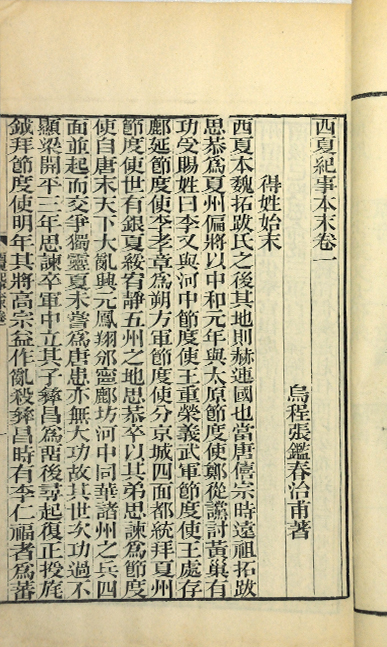 西夏紀事本末卷一
烏程張鑑春治甫著
得姓始末
西夏本魏拓跋氏之後其地則赫連國也當唐僖宗時遠祖拓跋
思恭為夏州偏將以中和元年與太原節度使鄭從讜討黃巢有
功受賜姓曰李又與河中節度使王重榮義武軍節度使王處存
鄜延節度使李孝章為朔方軍節度使分京城四面都統拜夏州
節度使世有銀夏綏宥靜五州之地思恭卒以其弟思諫為節度
使自唐末天下大亂興元鳳翔邠寧鄜坊河中同華諸州之兵四
面並起而交爭獨靈夏未嘗為唐患亦無大功故其世次功過不
顯梁開平三年思諫卒軍中立其子彝昌為留後尋起復正授旄
鉞拜節度使明年其將高宗益作亂殺彝昌時有李仁福者為蕃